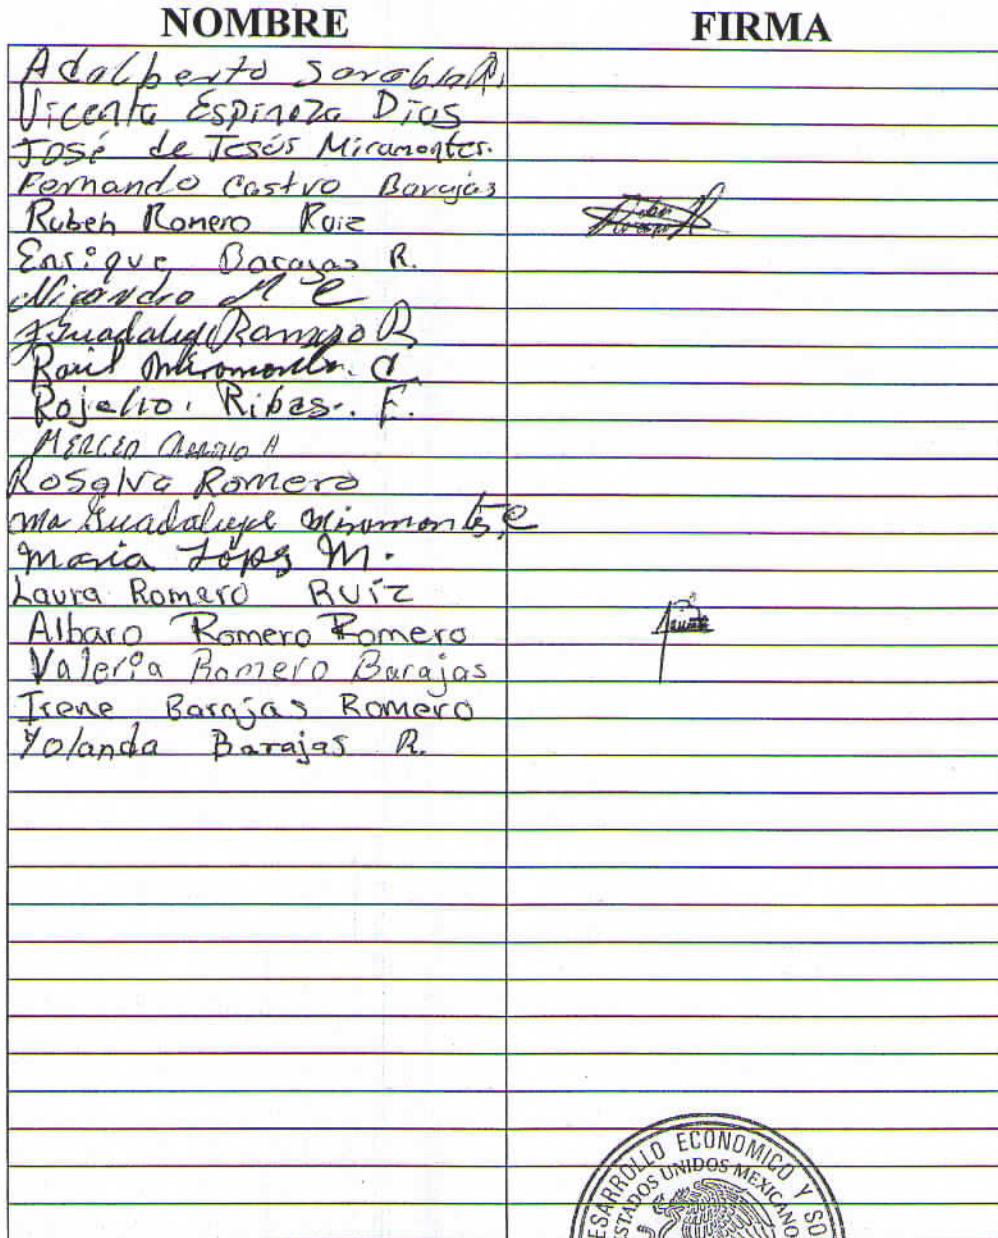 NOMBRE FIRMA
Adalberto Sarabia R.
Vicente Espinoza Dias
José de Jesús Miramontes.
Fernando Castro Barajas
Ruben Romero Ruiz
Enrique Barajas R.
Nicandro M C
J Guadalupe Ramiro R
Raul Miramontes. C
Rojelio. Ribas. F.
MERCED A
Rosalva Romero
Ma Guadalupe Miramontes, C
Maria López M.
Laura Romero RUÍZ
Albaro Romero Romero
Valeria Romero Barajas
Irene Barajas Romero
Yolanda Barajas R.
DESARROLLO ECONOMICO Y SO
ESTADOS UNIDOS MEXICANO